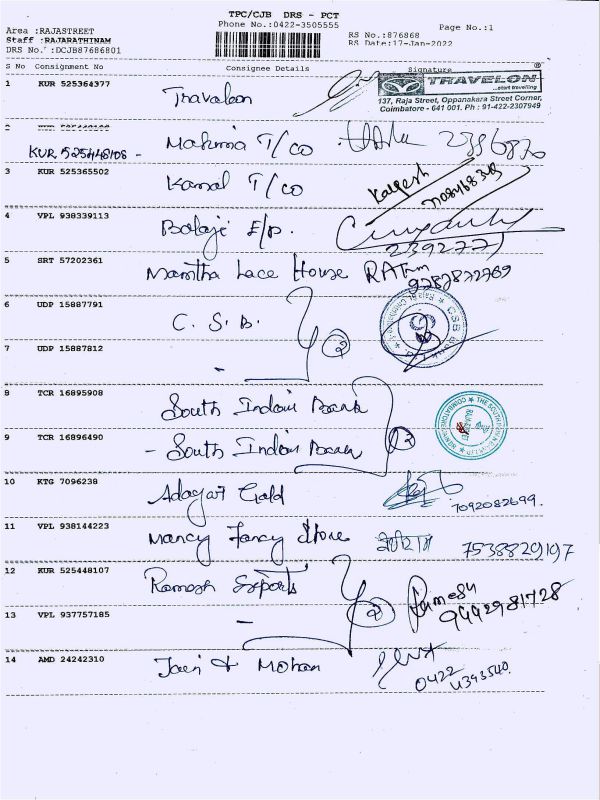 TPC/CJB DRS - PCT
Phone No.:0422-3505555
Page No.:1
Area :RAJASTREET
Staff :RAJARATHINAM
DRS No. :DCJB87686801
RS No.:876868
RS Date:17-Jan-2022
S No Consignment No Consignee Details Signature
1 KUR 525364377 Travaloon
TRAVELON
...start travelling
137, Raja Street, Oppanakara Street Corner,
Coimbatore - 641 001. Ph : 91-422-2307949
2
KUR 525448108 - Mahima T/CO 2396870
3 KUR 525365502 Kamal T/CO Kalpesh
4 VPL 938339113 Balaji E/D. 2392771
5 SRT 57202361 Mamtha Lace House
6 UDP 15887791 C. S. B. 2
7 UDP 15887812 -
8 TCR 16895908 South Indian Bank 2
9 TCR 16896490 - South Indian Bank
10 KTG 7096238 Adayar Gold 7092082699.
11 VPL 938144223 Nancy Fancy Store 7538829197
12 KUR 525448107 Ramesh Exports Ramesh
9442981728
13 VPL 937757185 - 2
14 AMD 24242310 Jain & Mohan
0422
4393540.